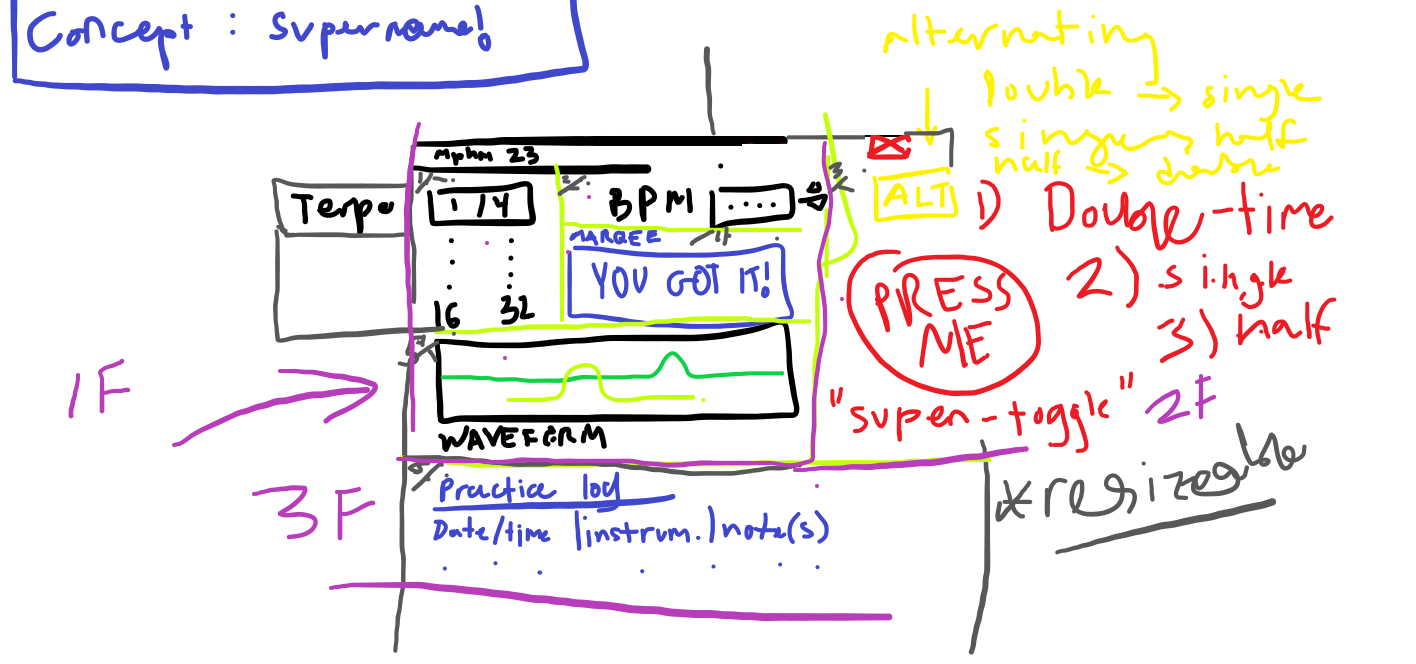 Concept : supername!
alternating
Double → single
single → half
half → double
Mphm 23
Tempo
1 / 4
BPM
ALT
MARQEE
YOU GOT IT!
16 32
1) Double-time
2) single
3) half
PRESS
ME
"super-toggle"
1F
2F
WAVEFORM
*resizeable
3F
Practice log
Date/time |instrum.|note(s)